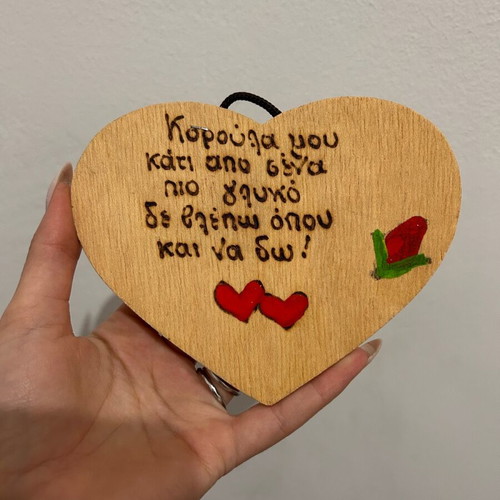 Κορούλα μου
κάτι απο σένα
πιο γλυκό
δε βλέπω όπου
και να δω!